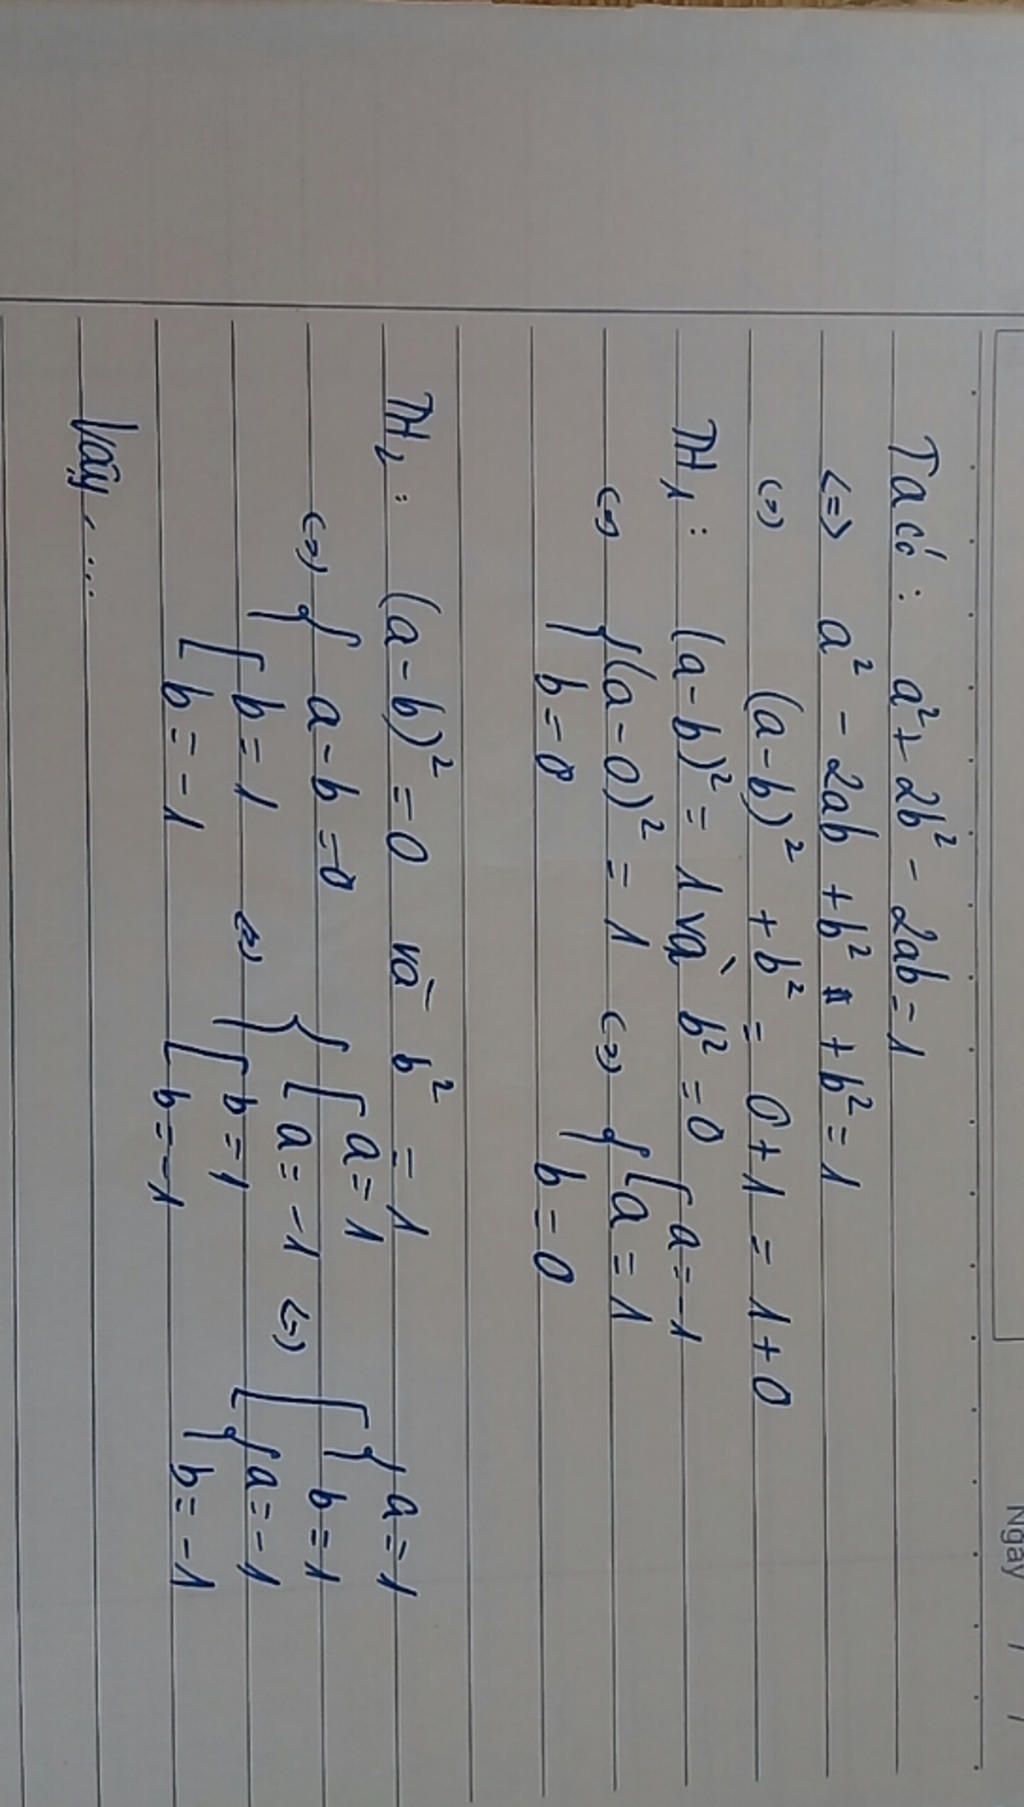 Ngày / /
Ta có : a² + 2b² - 2ab = 1
<=> a² - 2ab + b² + b² = 1
<=> (a-b)² + b² = 0+1 = 1+0
TH₁ : (a-b)² = 1 và b² = 0
<=> { (a-0)² = 1 ; b = 0 <=> { [ a = -1 ; a = 1 ; b = 0
TH₂ : (a-b)² = 0 và b² = 1
<=> { a-b = 0 ; [ b = 1 ; b = -1 <=> { [ a = 1 ; a = -1 ; [ b = 1 ; b = -1 <=> [ { a = 1 ; b = 1 ; { a = -1 ; b = -1
Vậy, ...